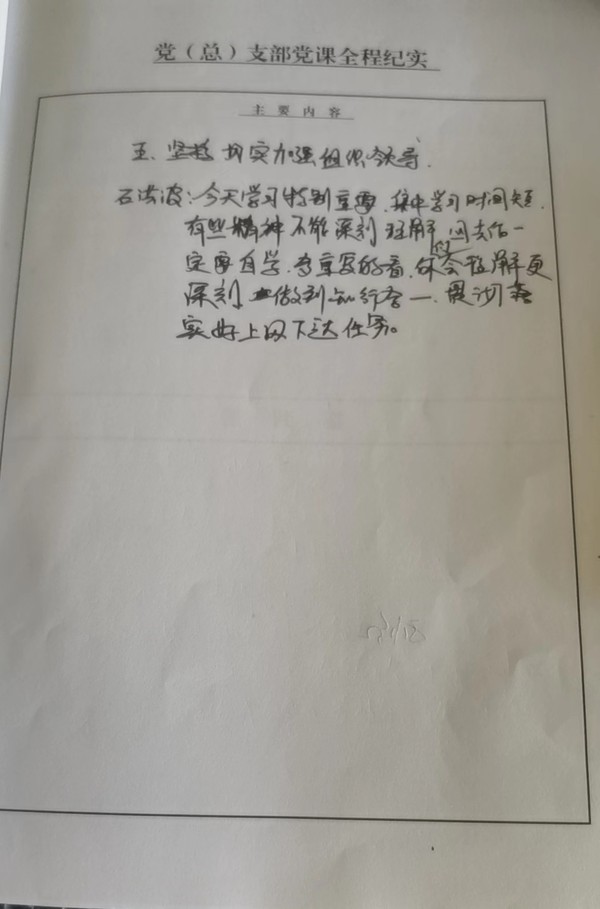 党（总）支部党课全程纪实
主要内容
五、坚持切实加强组织领导.
石洪波：今天学习特别重要，集中学习时间短.
有些精神不能深刻理解，回去后一
定要自学，会理解更
深刻，做到知行合一，
实好上级下达任务。